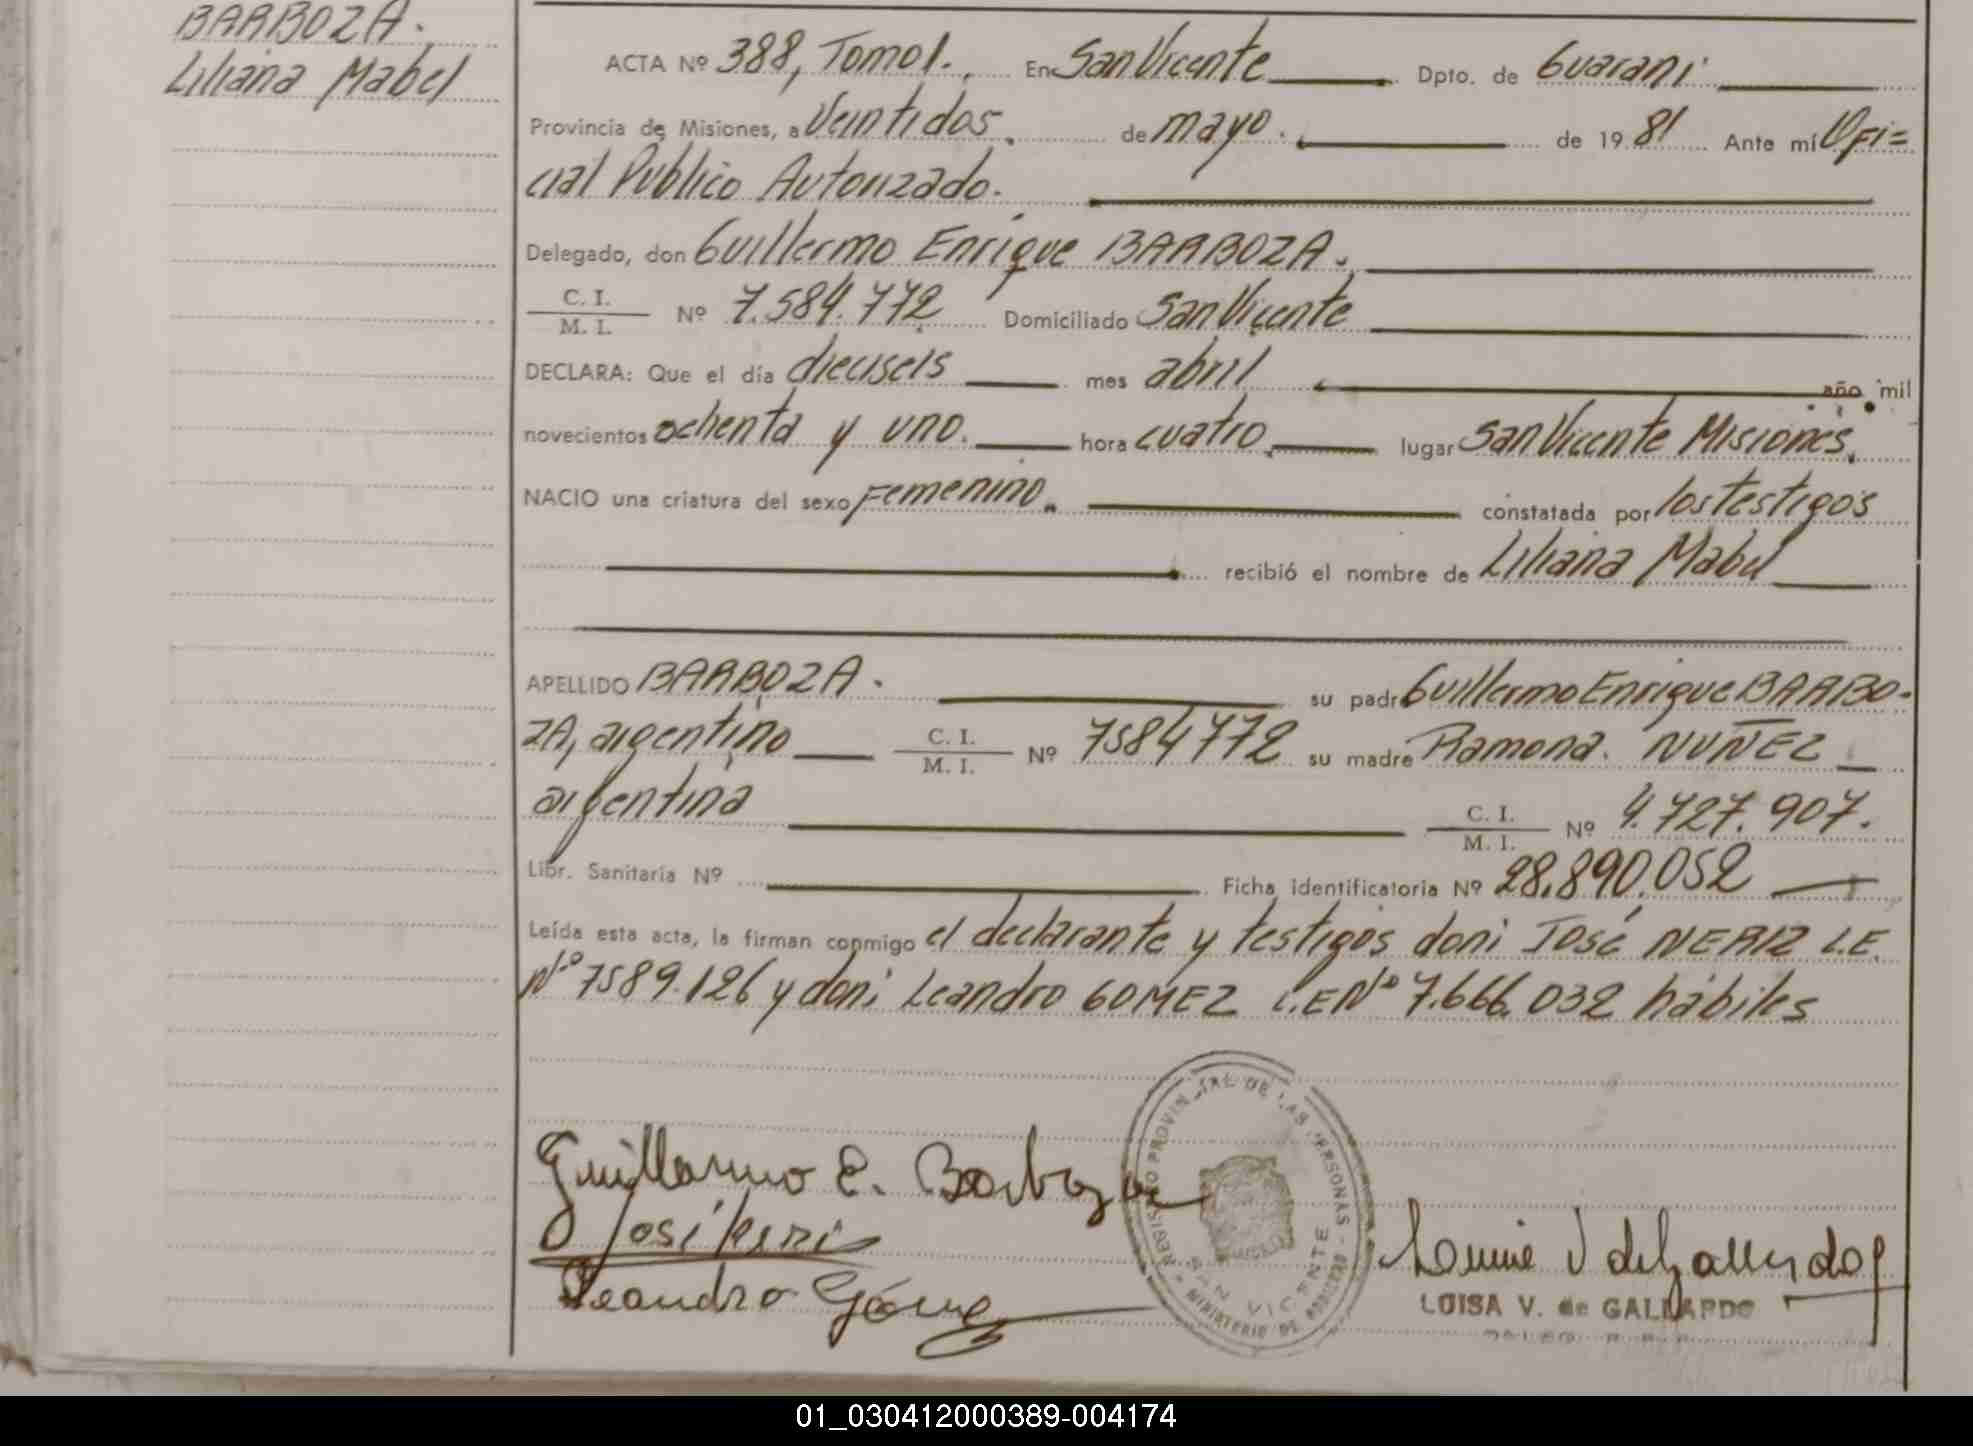 BARBOZA.
Liliana Mabel
ACTA Nº 388, Tomo I. En San Vicente Dpto. de Guarani
Provincia de Misiones, a Veintidos. de mayo. de 19 81 Ante mí Ofi=
cial Público Autorizado.
Delegado, don Guillermo Enrique BARBOZA.
C. I.
M. I. Nº 7.584.772 Domiciliado San Vicente
DECLARA: Que el día dieciseis mes abril año mil
novecientos ochenta y uno. hora cuatro lugar San Vicente Misiones.
NACIO una criatura del sexo Femenino. constatada por los testigos
recibió el nombre de Liliana Mabel
APELLIDO BARBOZA. su padre Guillermo Enrique BARBO-
ZA, argentino C. I. M. I. Nº 7584772 su madre Ramona. NUÑEZ
argentina C. I. M. I. Nº 4.727.907.
Libr. Sanitaria Nº Ficha identificatoria Nº 28.890.052
Leída esta acta, la firman conmigo el declarante y testigos don: José NERIZ L.E.
Nº 7589.126 y don: Leandro GOMEZ L.E Nº 7.666.032 hábiles
Guillermo E. Barboza
José
Leandro Gómez
REGISTRO PROVINCIAL DE LAS PERSONAS - MINISTERIO DE GOBIERNO -
SAN VICENTE
LUISA V. de GALLARDO
01_030412000389-004174